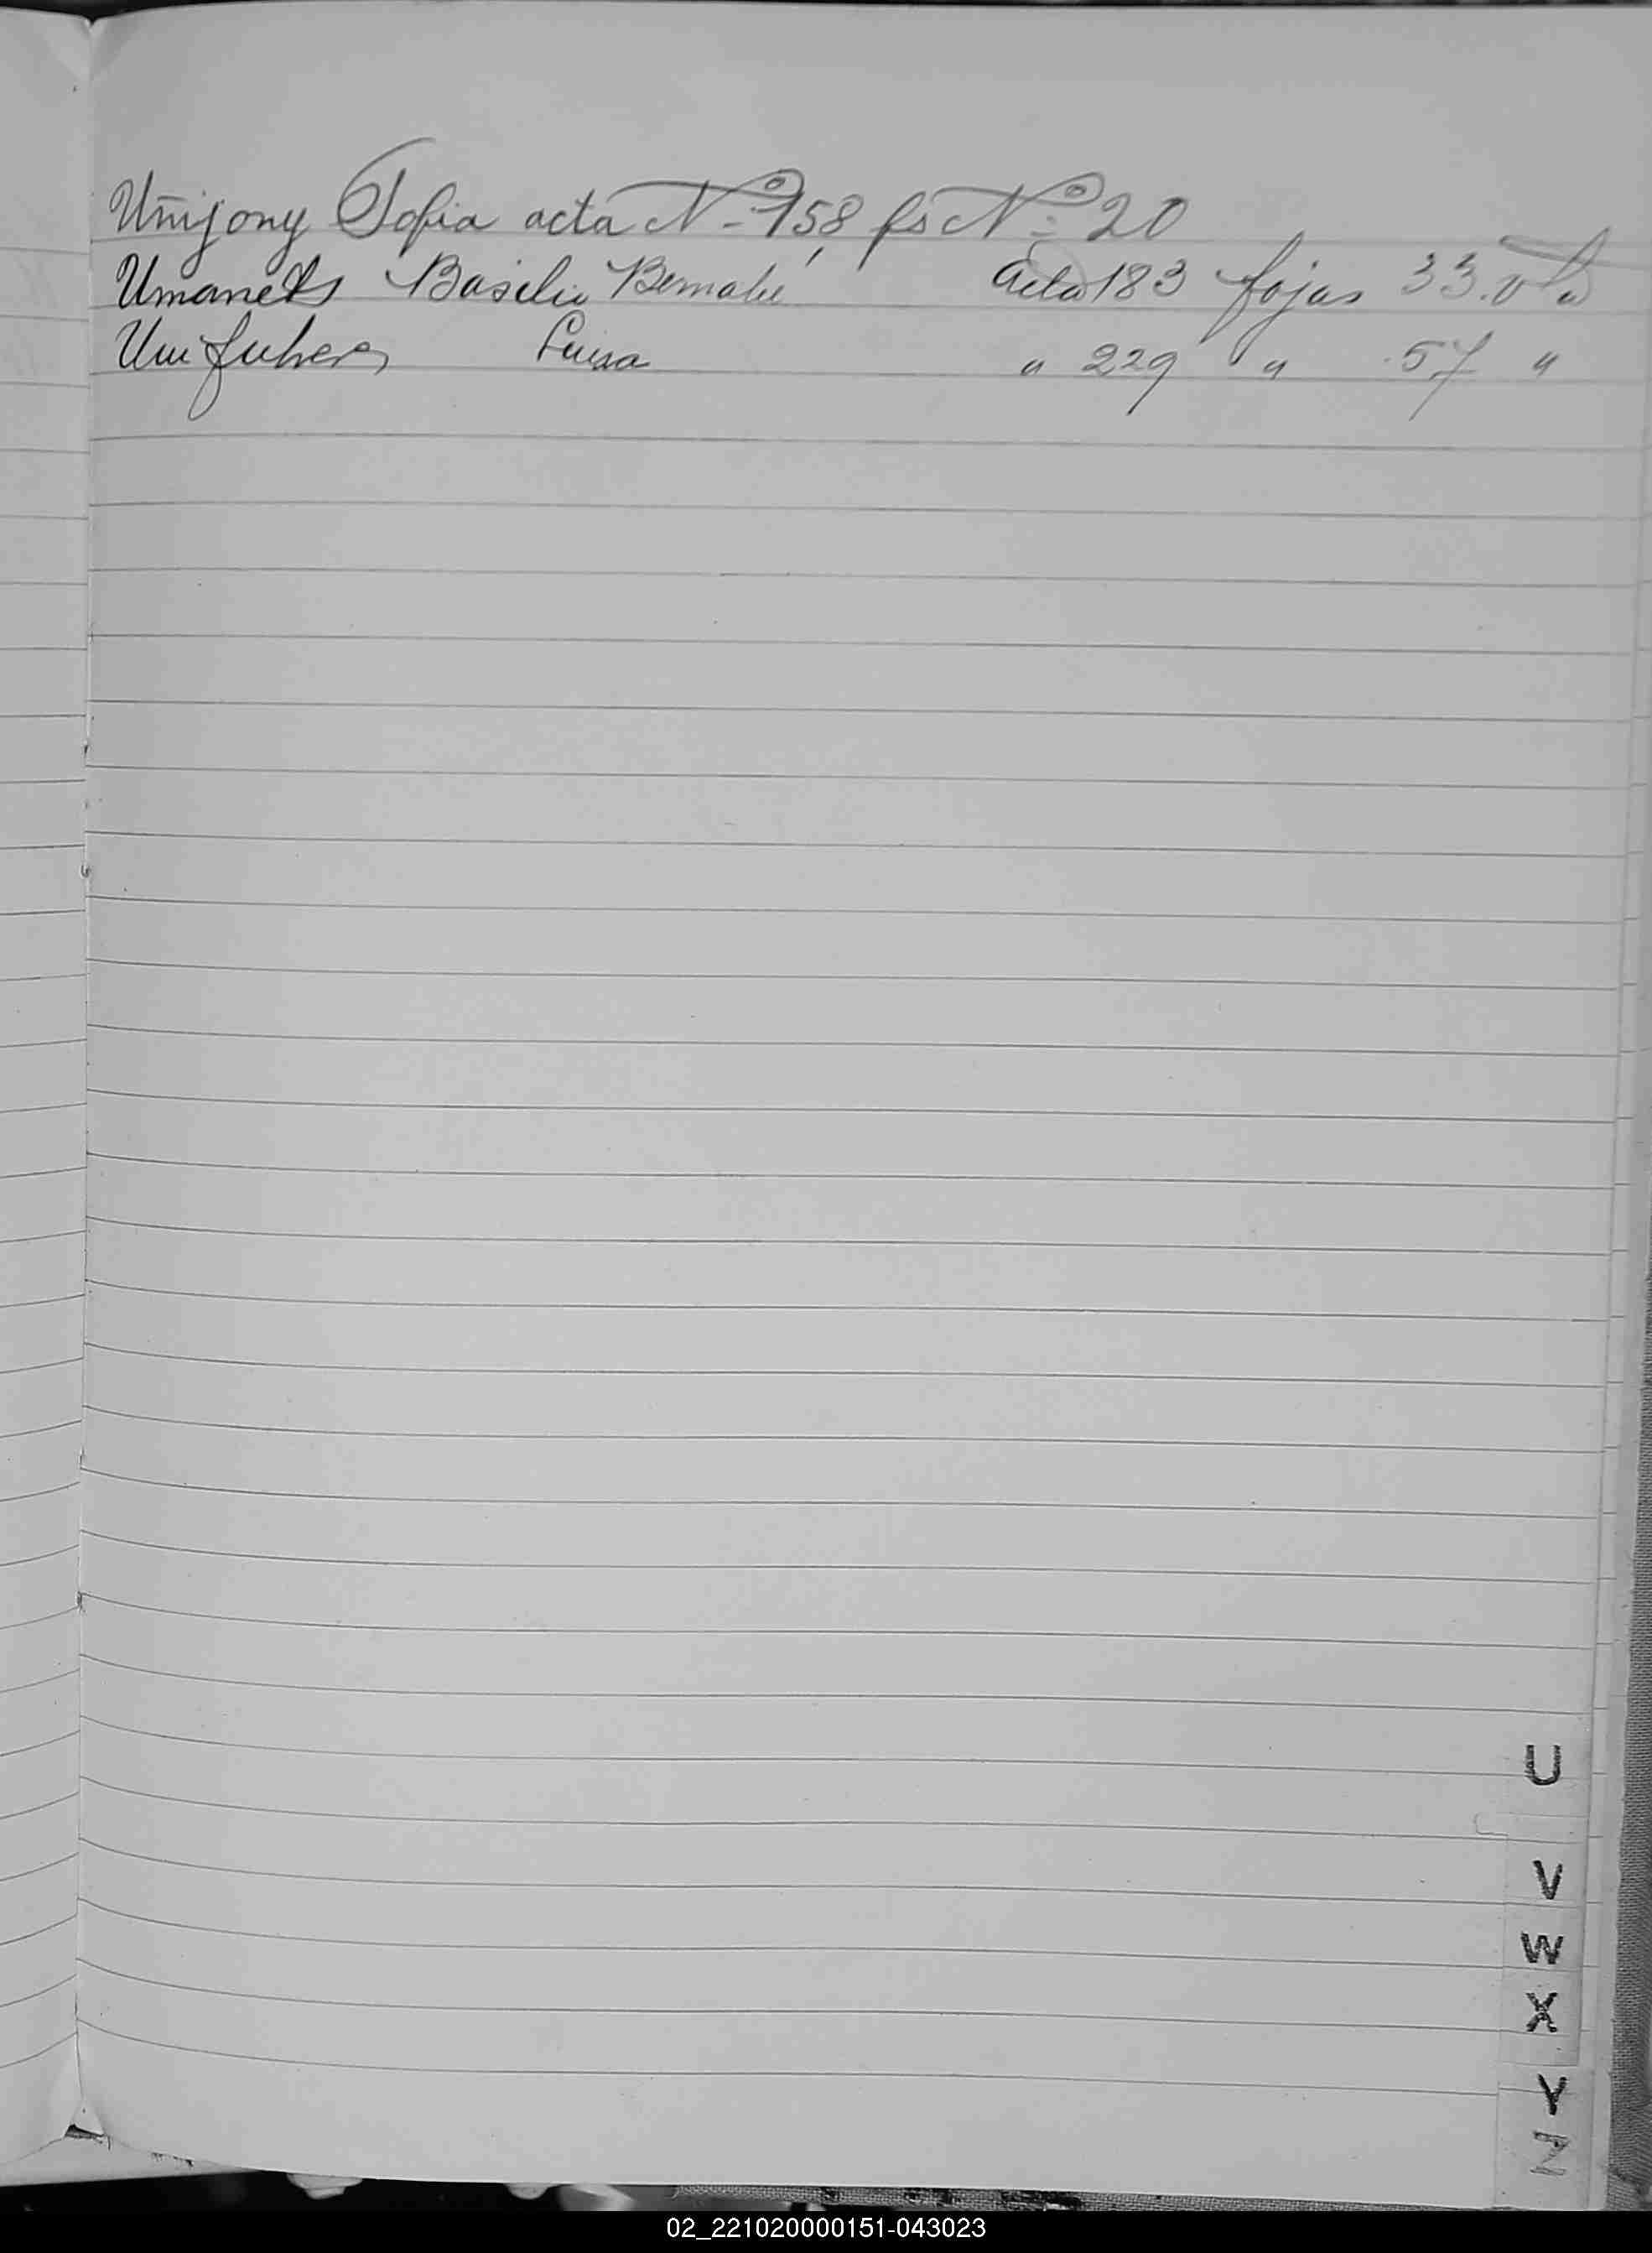 Unijony Sofia acta Nº 158 fs Nº 20
Umanets Basilio Bernabé Acta 183 fojas 33.vta
Luisa " 229 " 57 "
U
V
W
X
Y
Z
02_221020000151-043023